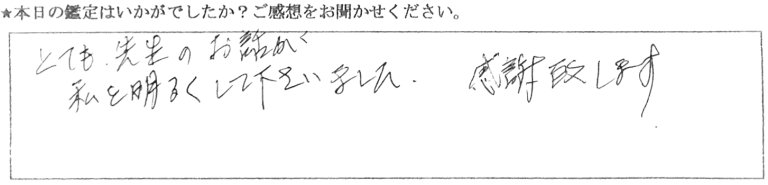 ★本日の鑑定はいかがでしたか？ご感想をお聞かせください。
とても、先生のお話が
私を明るくして下さいました. 感謝致します